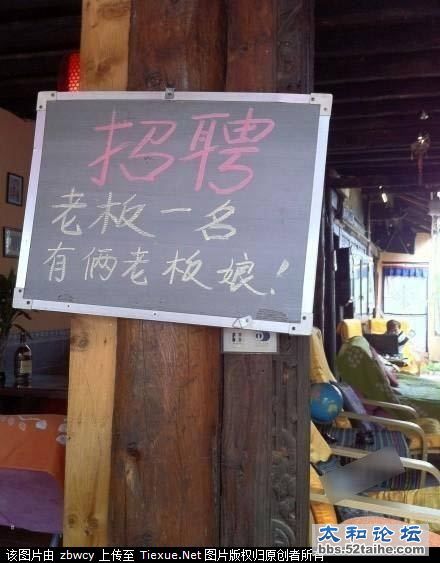 招聘
老板一名
有俩老板娘!
该图片由 zbwcy 上传至 Tiexue.Net 图片版权归原创者所有
太和论坛
bbs.52taihe.com